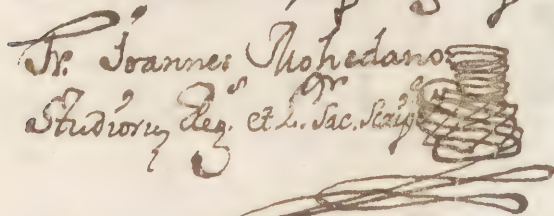 Fr. Joannes Mohedano
Studiorũ Reg.s et L. Sac. Scrip